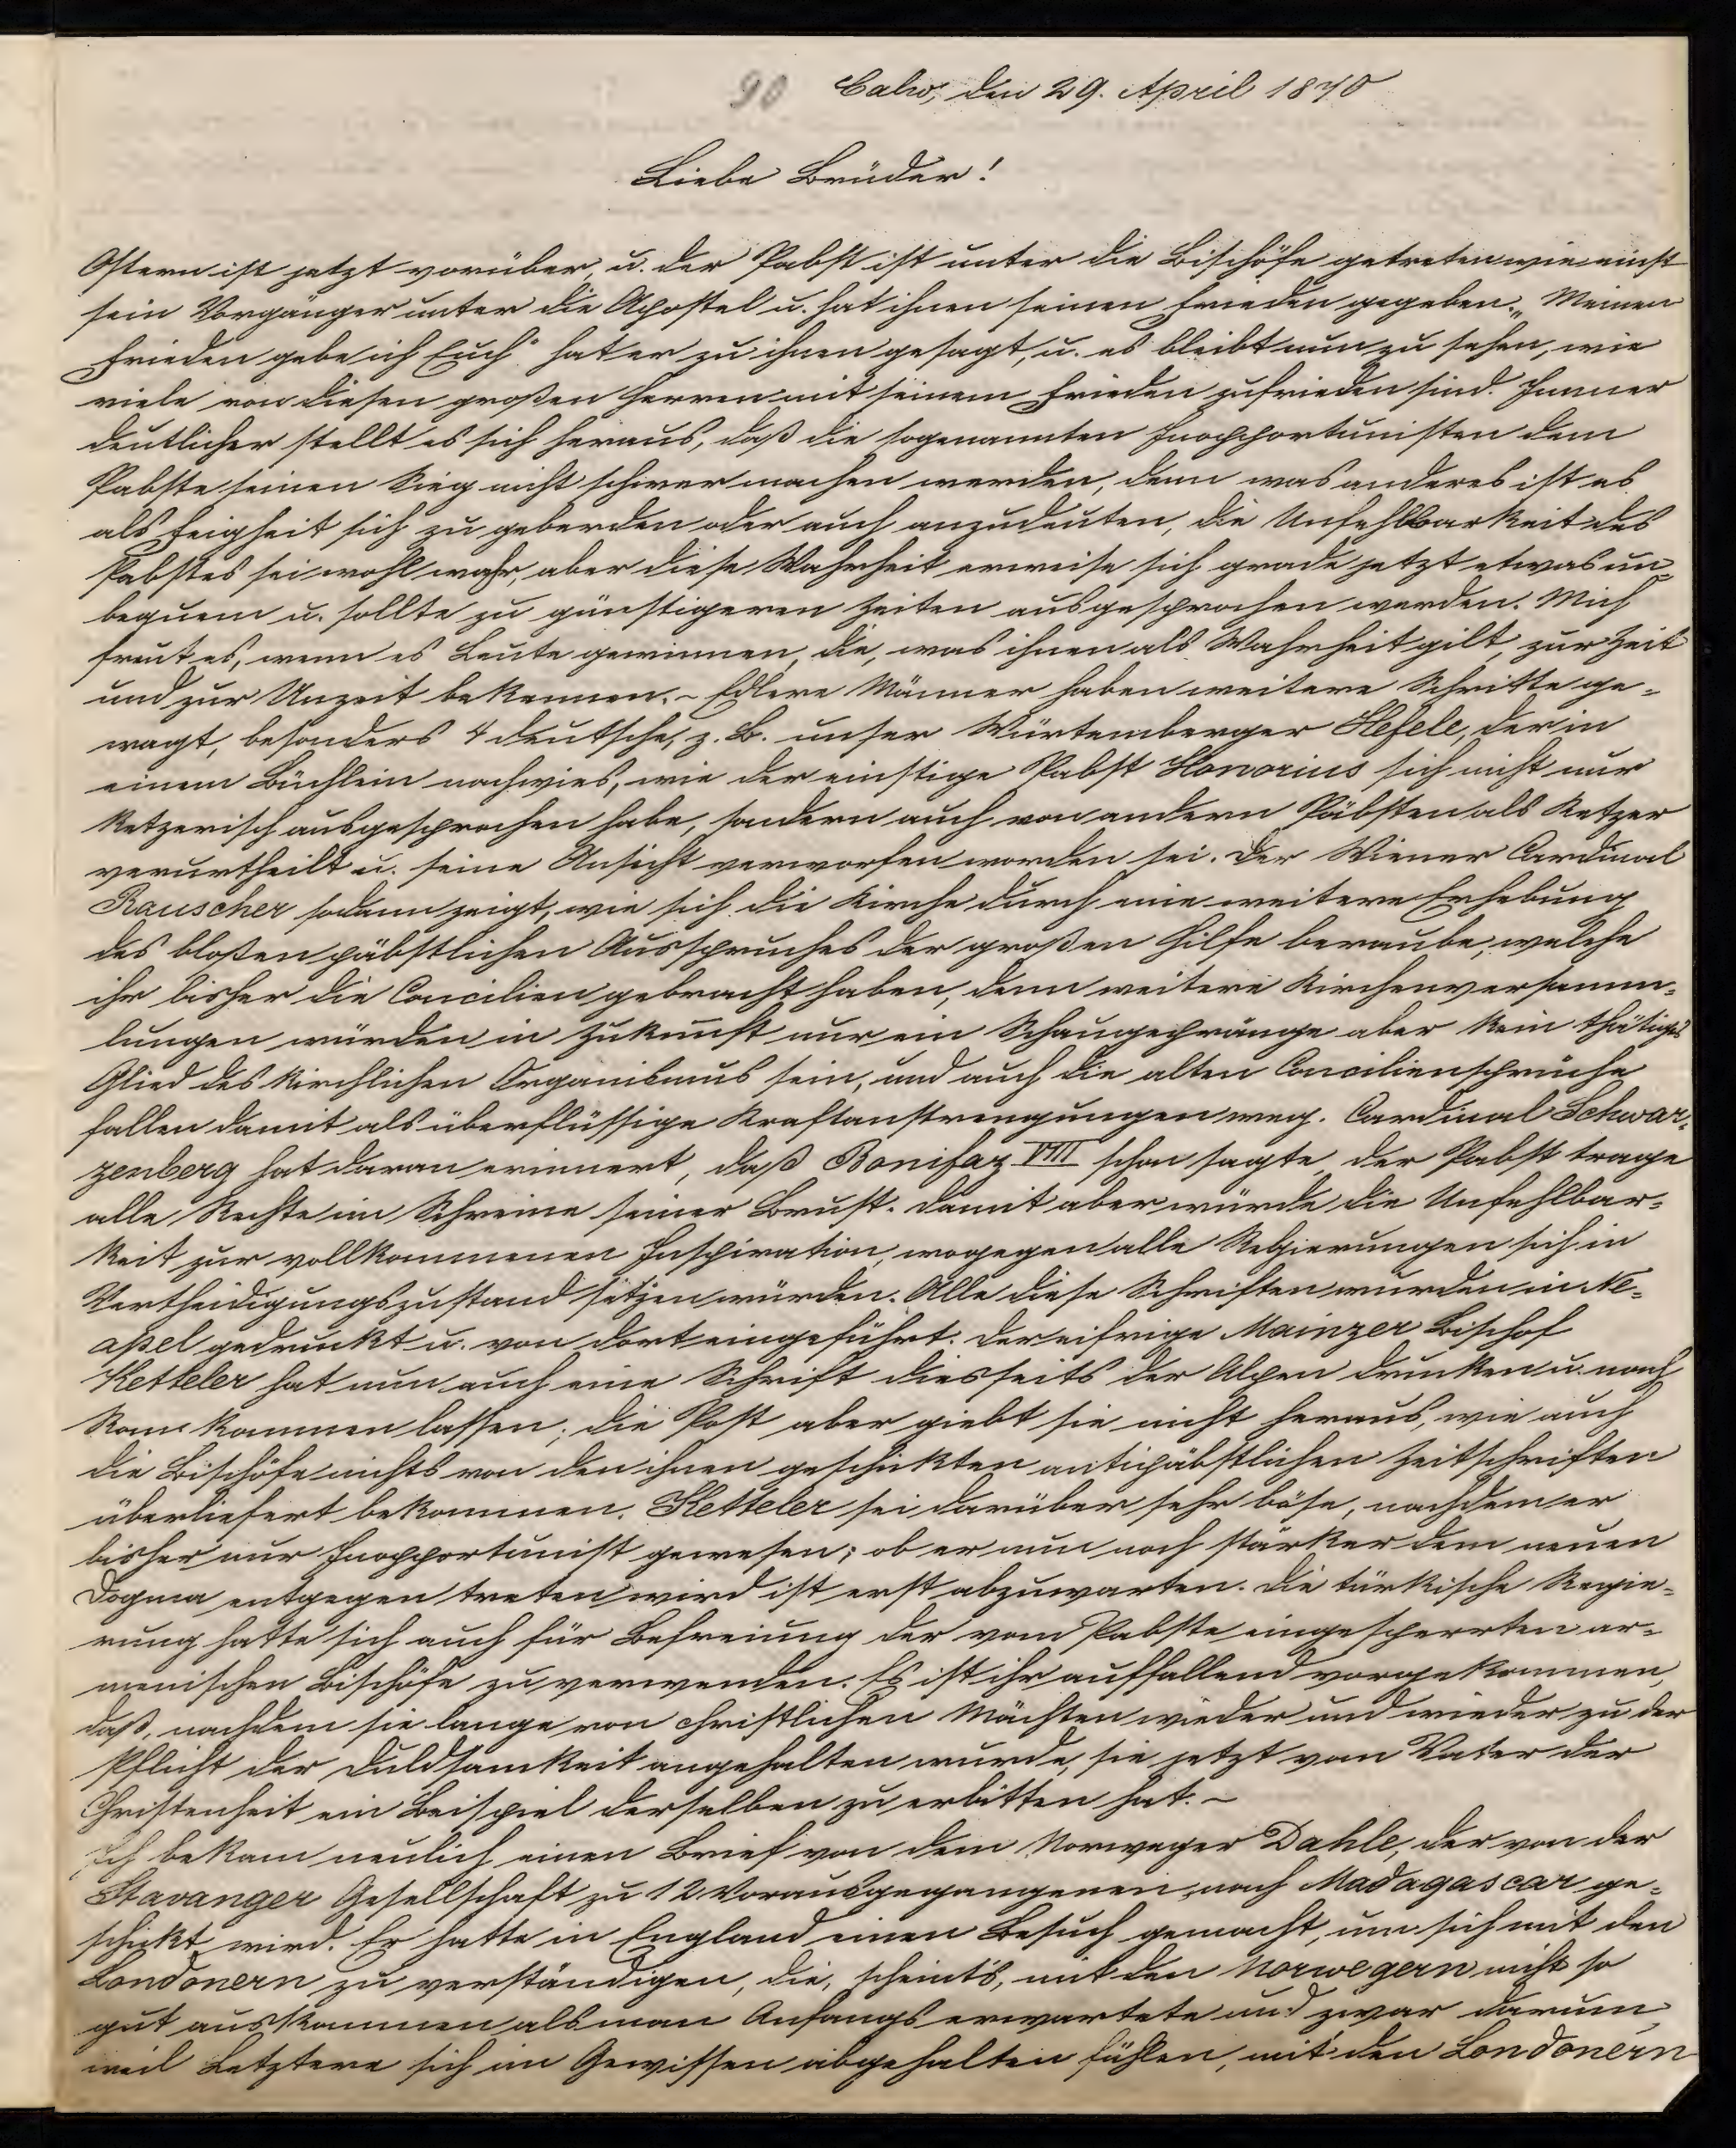 90 Calw, den 29. April 1870
Liebe Brüder!
Ostern ist jetzt vorüber, u. der Pabst ist unter die Bischöfe getreten wie einst
sein Vorgänger unter die Apostel u. hat ihnen seinen Frieden gegeben. „Meinen
Frieden gebe ich Euch" hat er zu ihnen gesagt, u. es bleibt nun zu sehen, wie
viele von diesen großen Herren mit seinem Frieden zufrieden sind. Immer
deutlicher stellt es sich heraus, daß die sogenannten Inopportunisten dem
Pabste seinen Sieg nicht schwer machen werden, denn was anderes ist es
als Feigheit sich zu geberden oder auch anzudeuten, die Unfehlbarkeit des
Pabstes sei wohl wahr, aber diese Wahrheit erweise sich grade jetzt etwas un-
bequem u. sollte zu günstigeren Zeiten ausgesprochen werden. Mich
freut es, wenn es Leute gewinnen, die, was ihnen als Wahrheit gilt, zur Zeit
und zur Unzeit bekennen. - Edlere Männer haben weitere Schritte ge-
wagt, besonders 4 deutsche, z. B. unser Würtemberger Hefele, der in
einem Büchlein nachwies, wie der einstige Pabst Honorius sich nicht nur
ketzerisch ausgesprochen habe, sondern auch von andern Päbsten als Ketzer
verurtheilt u. seine Ansicht verworfen worden sei. Der Wiener Cardinal
Rauscher sodann zeigt, wie sich die Kirche durch eine weitere Erhebung
des bloßen päbstlichen Ausspruches der großen Hilfe beraube, welche
ihr bisher die Concilien gebracht haben, denn weitere Kirchenversamm-
lungen würden in Zukunft nur ein Schaugepränge aber kein thätiges
Glied des kirchlichen Organismus sein, und auch die alten Conciliensprüche
fallen damit als überflüssige Kraftanstrengungen weg. Cardinal Schwar-
zenberg hat daran erinnert, daß Bonifaz VIII schon sagte, der Pabst trage
alle Rechte im Schreine seiner Brust. Damit aber würde die Unfehlbar-
keit zur vollkommenen Inspiration, wogegen alle Regierungen sich in
Vertheidigungszustand setzen würden. Alle diese Schriften wurden in Ne-
apel gedruckt u. von dort eingeführt. Der eifrige Mainzer Bischof
Ketteler hat nun auch eine Schrift diesseits der Alpen drucken u. nach
Rom kommen lassen; die Post aber giebt sie nicht heraus, wie auch
die Bischöfe nichts von den ihnen geschickten antipäbstlichen Zeitschriften
überliefert bekommen. Ketteler sei darüber sehr böse, nachdem er
bisher nur Inopportunist gewesen; ob er nun noch stärker dem neuen
Dogma entgegen treten wird ist erst abzuwarten. Die türkische Regie-
rung hatte sich auch für Befreiung der vom Pabste eingesperrten ar-
menischen Bischöfe zu verwenden. Es ist ihr auffallend vorgekommen,
daß, nachdem sie lange von christlichen Mächten wieder und wieder zu der
Pflicht der Duldsamkeit angehalten wurde, sie jetzt vom Vater der
Christenheit ein Beispiel derselben zu erbitten hat. -
Ich bekam neulich einen Brief von dem Norweger Dahle, der von der
Stavanger Gesellschaft zu 12 Vorausgegangenen nach Madagascar ge-
schickt wird. Er hatte in England einen Besuch gemacht, um sich mit den
Londonern zu verständigen, die, scheint's, mit den Norwegern nicht so
gut auskommen als man Anfangs erwartete und zwar darum,
weil Letztere sich im Gewissen abgehalten fühlen, mit den Londonern